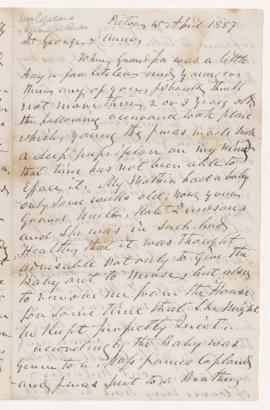 Mrs Copeland
Pictou 15 April 1857
Dr George &
Annas
When Grandpa was a little
boy a fair little lien and younger
than any of you, I should think
not more than 2 or 3 years old
the following occurance took place
which, young as I was made such
a deep impression on my mind
that time has not been able to
efface it. My Mother had a baby
only some weeks old, now your
Grand Uncle,
and she was in such bad
Health, that it was thought
adviseable not only to give the
Baby out to Nurse, but also
to remove me from the House
for some time that She might
be Kept properly Quiet.
According the Baby was
given to a Mrs named Copland
and I was sent to a Brother